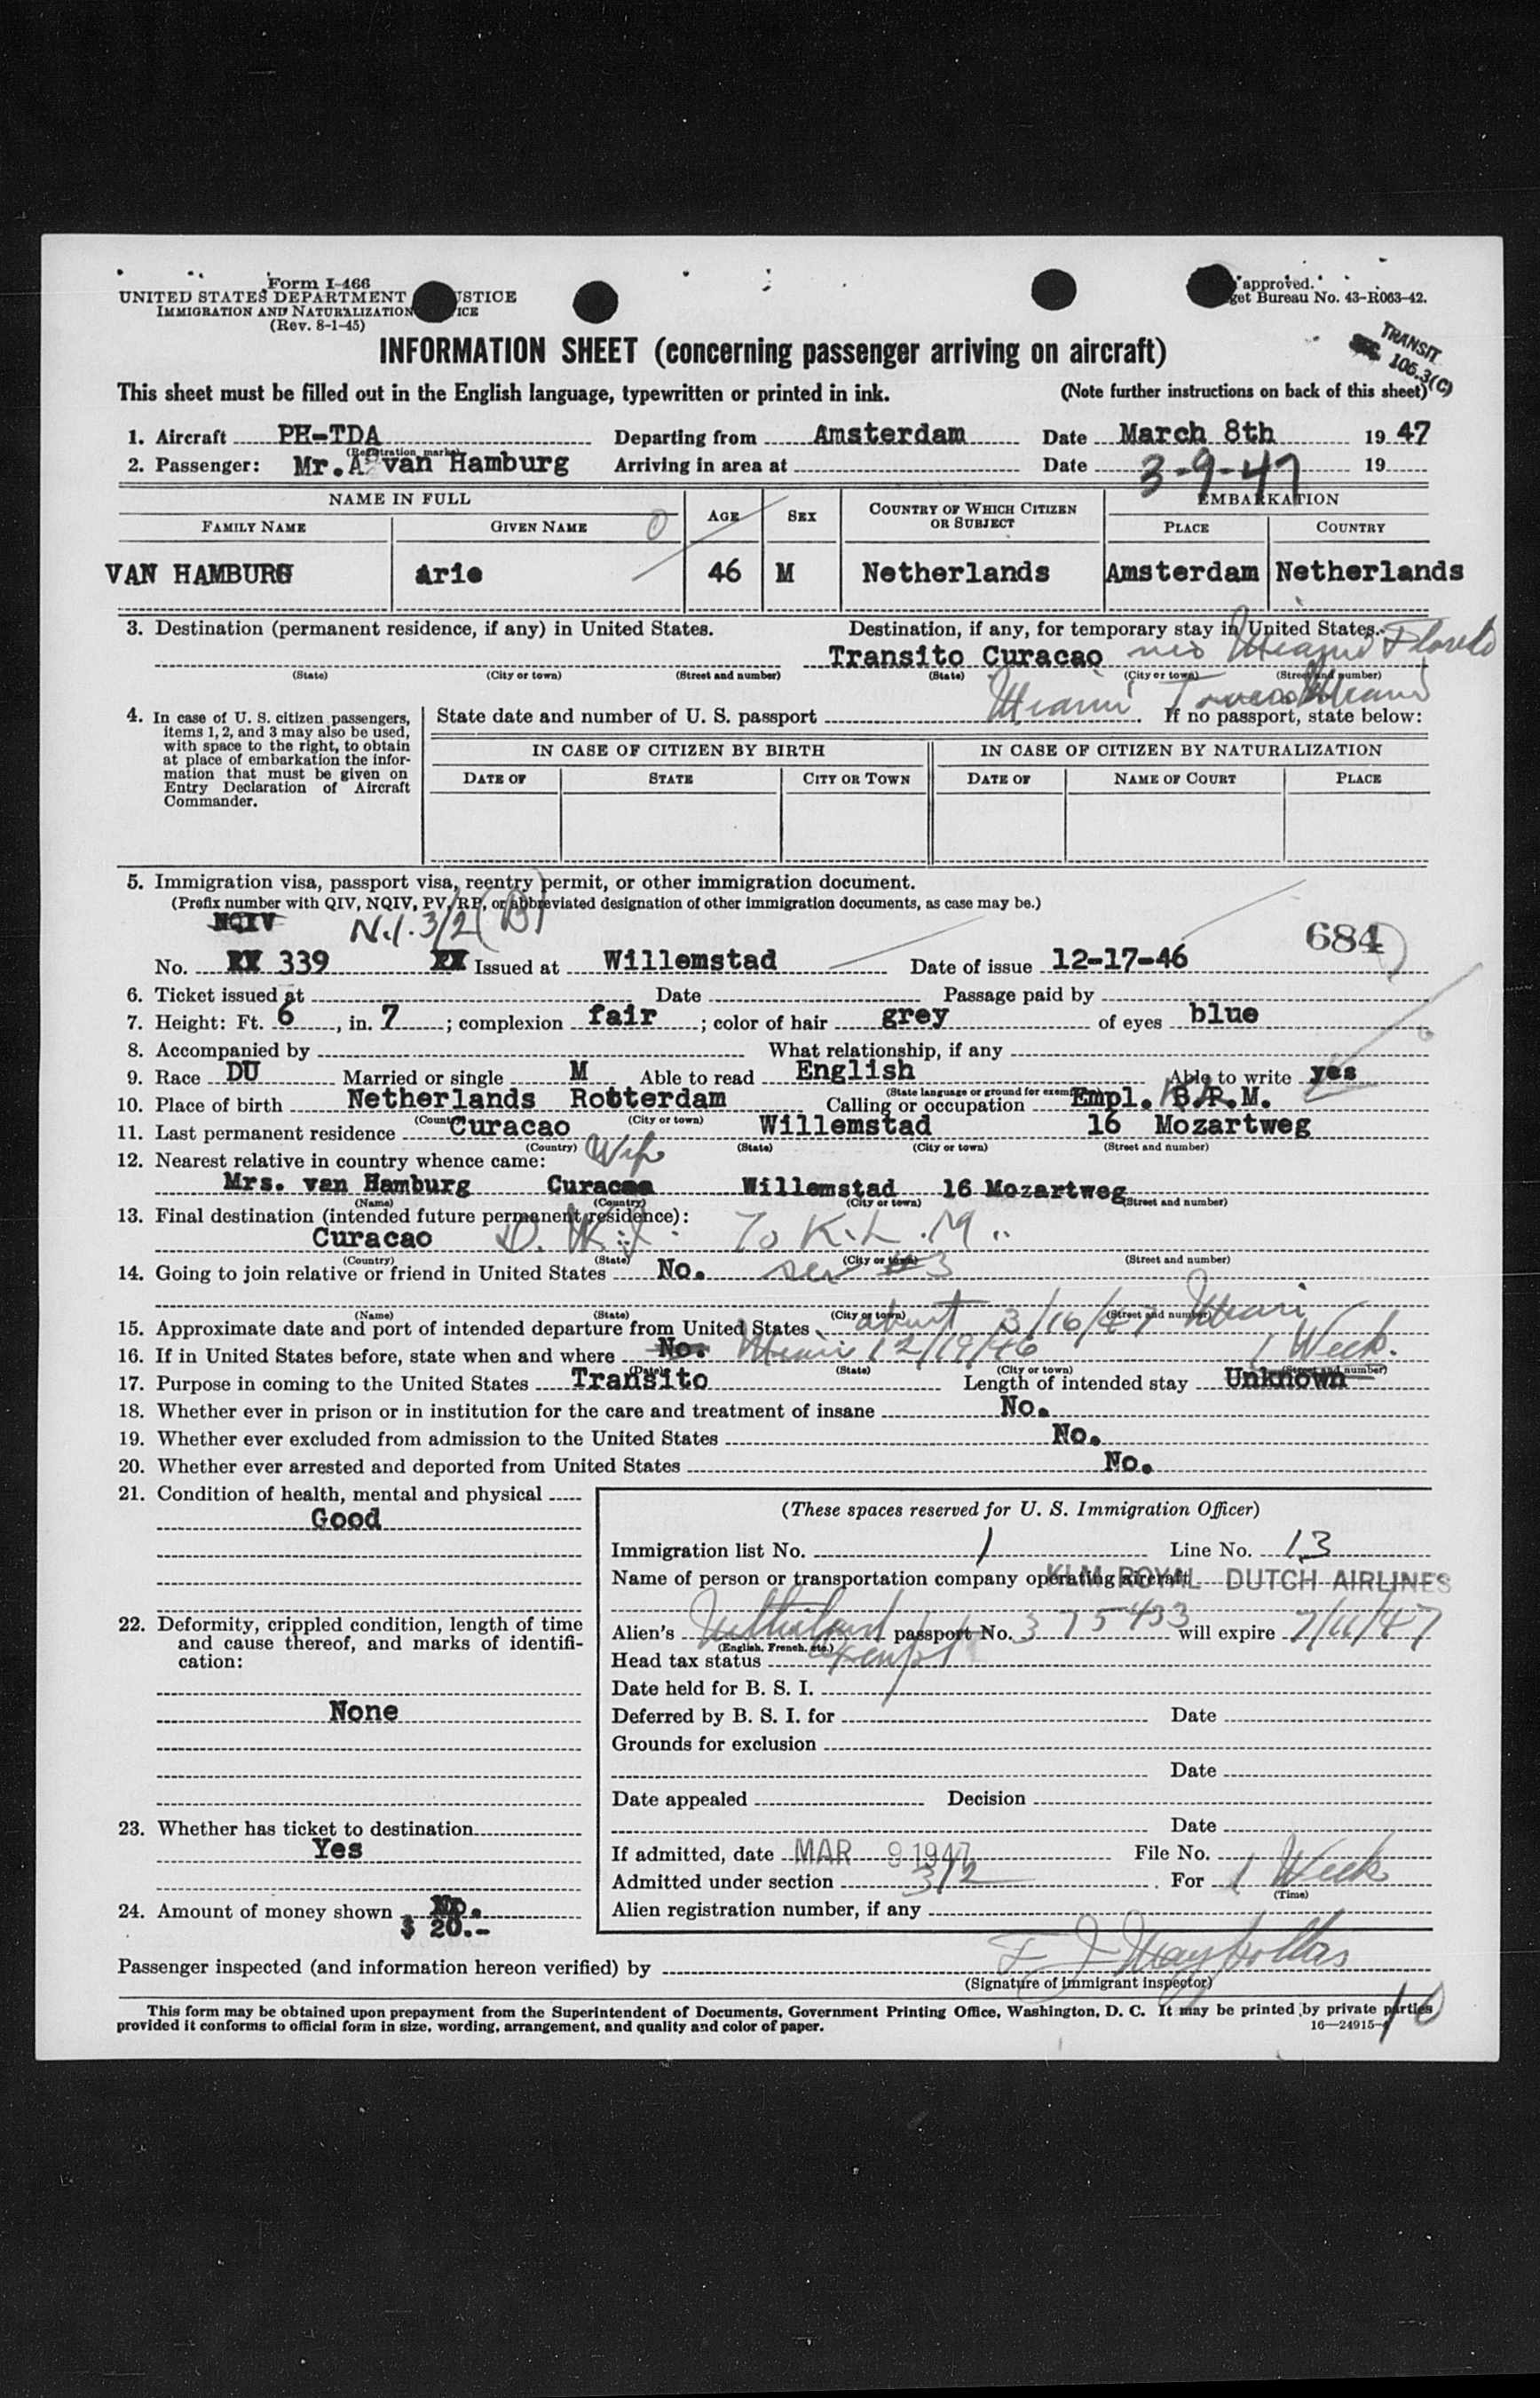 Form I-466
UNITED STATES DEPARTMENT STICE
IMMIGRATION AND NATURALIZATION ICE
(Rev. 8-1-45)
approved.
get Bureau No. 43-R063-42.
TRANSIT
106.3(C)
INFORMATION SHEET (concerning passenger arriving on aircraft)
This sheet must be filled out in the English language, typewritten or printed in ink. (Note further instructions on back of this sheet)
1. Aircraft PH-TDA Departing from Amsterdam Date March 8th 19 47
(Registration marks)
2. Passenger: Mr. A. van Hamburg Arriving in area at Date 3-9-47 19
NAME IN FULL AGE SEX COUNTRY OF WHICH CITIZEN OR SUBJECT EMBARKATION
FAMILY NAME GIVEN NAME PLACE COUNTRY
VAN HAMBURG Arie 46 M Netherlands Amsterdam Netherlands
3. Destination (permanent residence, if any) in United States. Destination, if any, for temporary stay in United States.
Transito Curacao Miami Florida
(State) (City or town) (Street and number) (State) (City or town) (Street and number)
Miami Towers Miami
4. In case of U. S. citizen passengers, items 1, 2, and 3 may also be used, with space to the right, to obtain at place of embarkation the information that must be given on Entry Declaration of Aircraft Commander.
State date and number of U. S. passport If no passport, state below:
IN CASE OF CITIZEN BY BIRTH IN CASE OF CITIZEN BY NATURALIZATION
DATE OF STATE CITY OR TOWN DATE OF NAME OF COURT PLACE
5. Immigration visa, passport visa, reentry permit, or other immigration document.
(Prefix number with QIV, NQIV, PV, RP, or abbreviated designation of other immigration documents, as case may be.)
NQIV N.I. 3/2 (B) 684
No. XX 339 XX Issued at Willemstad Date of issue 12-17-46
6. Ticket issued at Date Passage paid by
7. Height: Ft. 6, in. 7; complexion fair; color of hair grey of eyes blue
8. Accompanied by What relationship, if any
9. Race DU Married or single M Able to read English Able to write yes
(State language or ground for exemption)
10. Place of birth Netherlands Rotterdam Calling or occupation Empl. M.
(Country) (City or town)
11. Last permanent residence Curacao Willemstad 16 Mozartweg
(Country) (State) (City or town) (Street and number)
12. Nearest relative in country whence came: Wife
Mrs. van Hamburg Curacao Willemstad 16 Mozartweg
(Name) (Country) (City or town) (Street and number)
13. Final destination (intended future permanent residence):
Curacao D.W.I. To K.L.M.
(Country) (State) (City or town) (Street and number)
14. Going to join relative or friend in United States No. see #3
(Name) (State) (City or town) (Street and number)
15. Approximate date and port of intended departure from United States about 3/16/47 Miami
16. If in United States before, state when and where No. Miami 12/19/46 1 Week.
(Date) (State) (City or town) (Street and number)
17. Purpose in coming to the United States Transito Length of intended stay Unknown
18. Whether ever in prison or in institution for the care and treatment of insane No.
19. Whether ever excluded from admission to the United States No.
20. Whether ever arrested and deported from United States No.
21. Condition of health, mental and physical
Good
22. Deformity, crippled condition, length of time and cause thereof, and marks of identification:
None
23. Whether has ticket to destination
Yes
24. Amount of money shown No.
$ 20.-
(These spaces reserved for U. S. Immigration Officer)
Immigration list No. 1 Line No. 13
Name of person or transportation company operating aircraft KLM ROYAL DUTCH AIRLINES
Alien's Netherland passport No. 375433 will expire 7/11/47
(English, French, etc.)
Head tax status exempt
Date held for B. S. I.
Deferred by B. S. I. for Date
Grounds for exclusion
Date
Date appealed Decision
Date
If admitted, date MAR 9 1947 File No.
Admitted under section 3/2 For 1 Week
(Time)
Alien registration number, if any
Passenger inspected (and information hereon verified) by
(Signature of immigrant inspector)
This form may be obtained upon prepayment from the Superintendent of Documents, Government Printing Office, Washington, D. C. It may be printed by private parties
provided it conforms to official form in size, wording, arrangement, and quality and color of paper.
16—24915-